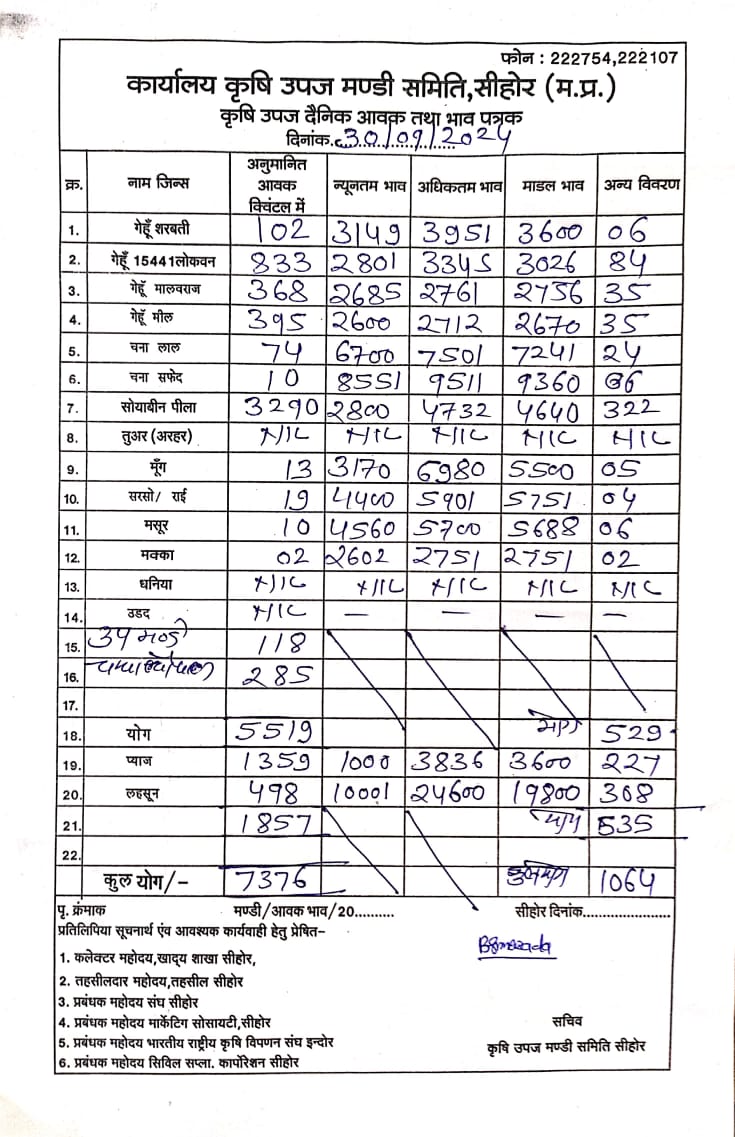 फोन : 222754,222107
कार्यालय कृषि उपज मण्डी समिति,सीहोर (म.प्र.)
कृषि उपज दैनिक आवक तथा भाव पत्रक
दिनांक. 30/09/2024
क्र. नाम जिन्स अनुमानित आवक क्विंटल में न्यूनतम भाव अधिकतम भाव माडल भाव अन्य विवरण
1. गेहूँ शरबती 102 3149 3951 3600 06
2. गेहूँ 15441लोकवन 833 2801 3345 3026 84
3. गेहूँ मालवराज 368 2685 2761 2756 35
4. गेहूँ मील 395 2600 2712 2670 35
5. चना लाल 74 6700 7501 7241 24
6. चना सफेद 10 8551 9511 9360 06
7. सोयाबीन पीला 3290 2800 4732 4640 322
8. तुअर (अरहर) NIL NIL NIL NIL NIL
9. मूँग 13 3170 6980 5500 05
10. सरसो/ राई 19 4400 5901 5751 04
11. मसूर 10 4560 5700 5688 06
12. मक्का 02 2602 2751 2751 02
13. धनिया NIL NIL NIL NIL NIL
14. उडद NIL — — — —
15. उप मण्डी 118
16. 285
17.
18. योग 5519 योग 529
19. प्याज 1359 1000 3836 3600 227
20. लहसून 498 10001 24600 19800 308
21. 1857 योग 535
22.
कुल योग/- 7376 कुल योग 1064
पृ. क्रंमाक मण्डी/आवक भाव/20.......... सीहोर दिनांक......................
प्रतिलिपिया सूचनार्थ एंव आवश्यक कार्यवाही हेतु प्रेषित-
1. कलेक्टर महोदय,खाद्य शाखा सीहोर,
2. तहसीलदार महोदय,तहसील सीहोर
3. प्रबंधक महोदय संघ सीहोर
4. प्रबंधक महोदय मार्केटिग सोसायटी,सीहोर
सचिव
5. प्रबंधक महोदय भारतीय राष्ट्रीय कृषि विपणन संघ इन्दोर
कृषि उपज मण्डी समिति सीहोर
6. प्रबंधक महोदय सिविल सप्ला. कार्पोरेशन सीहोर